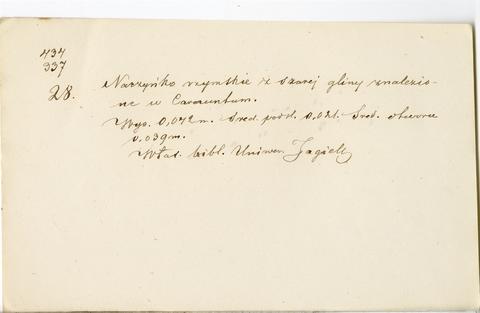 434
337
28.
Naczyńko rzymskie z szarej gliny znalezio-
ne w Carnuntum.
Wys. 0,072 m. Śred. podst. 0,021. Śred. otworu
0,039 m.
Włas. bibl. Uniwer. Jagiell.